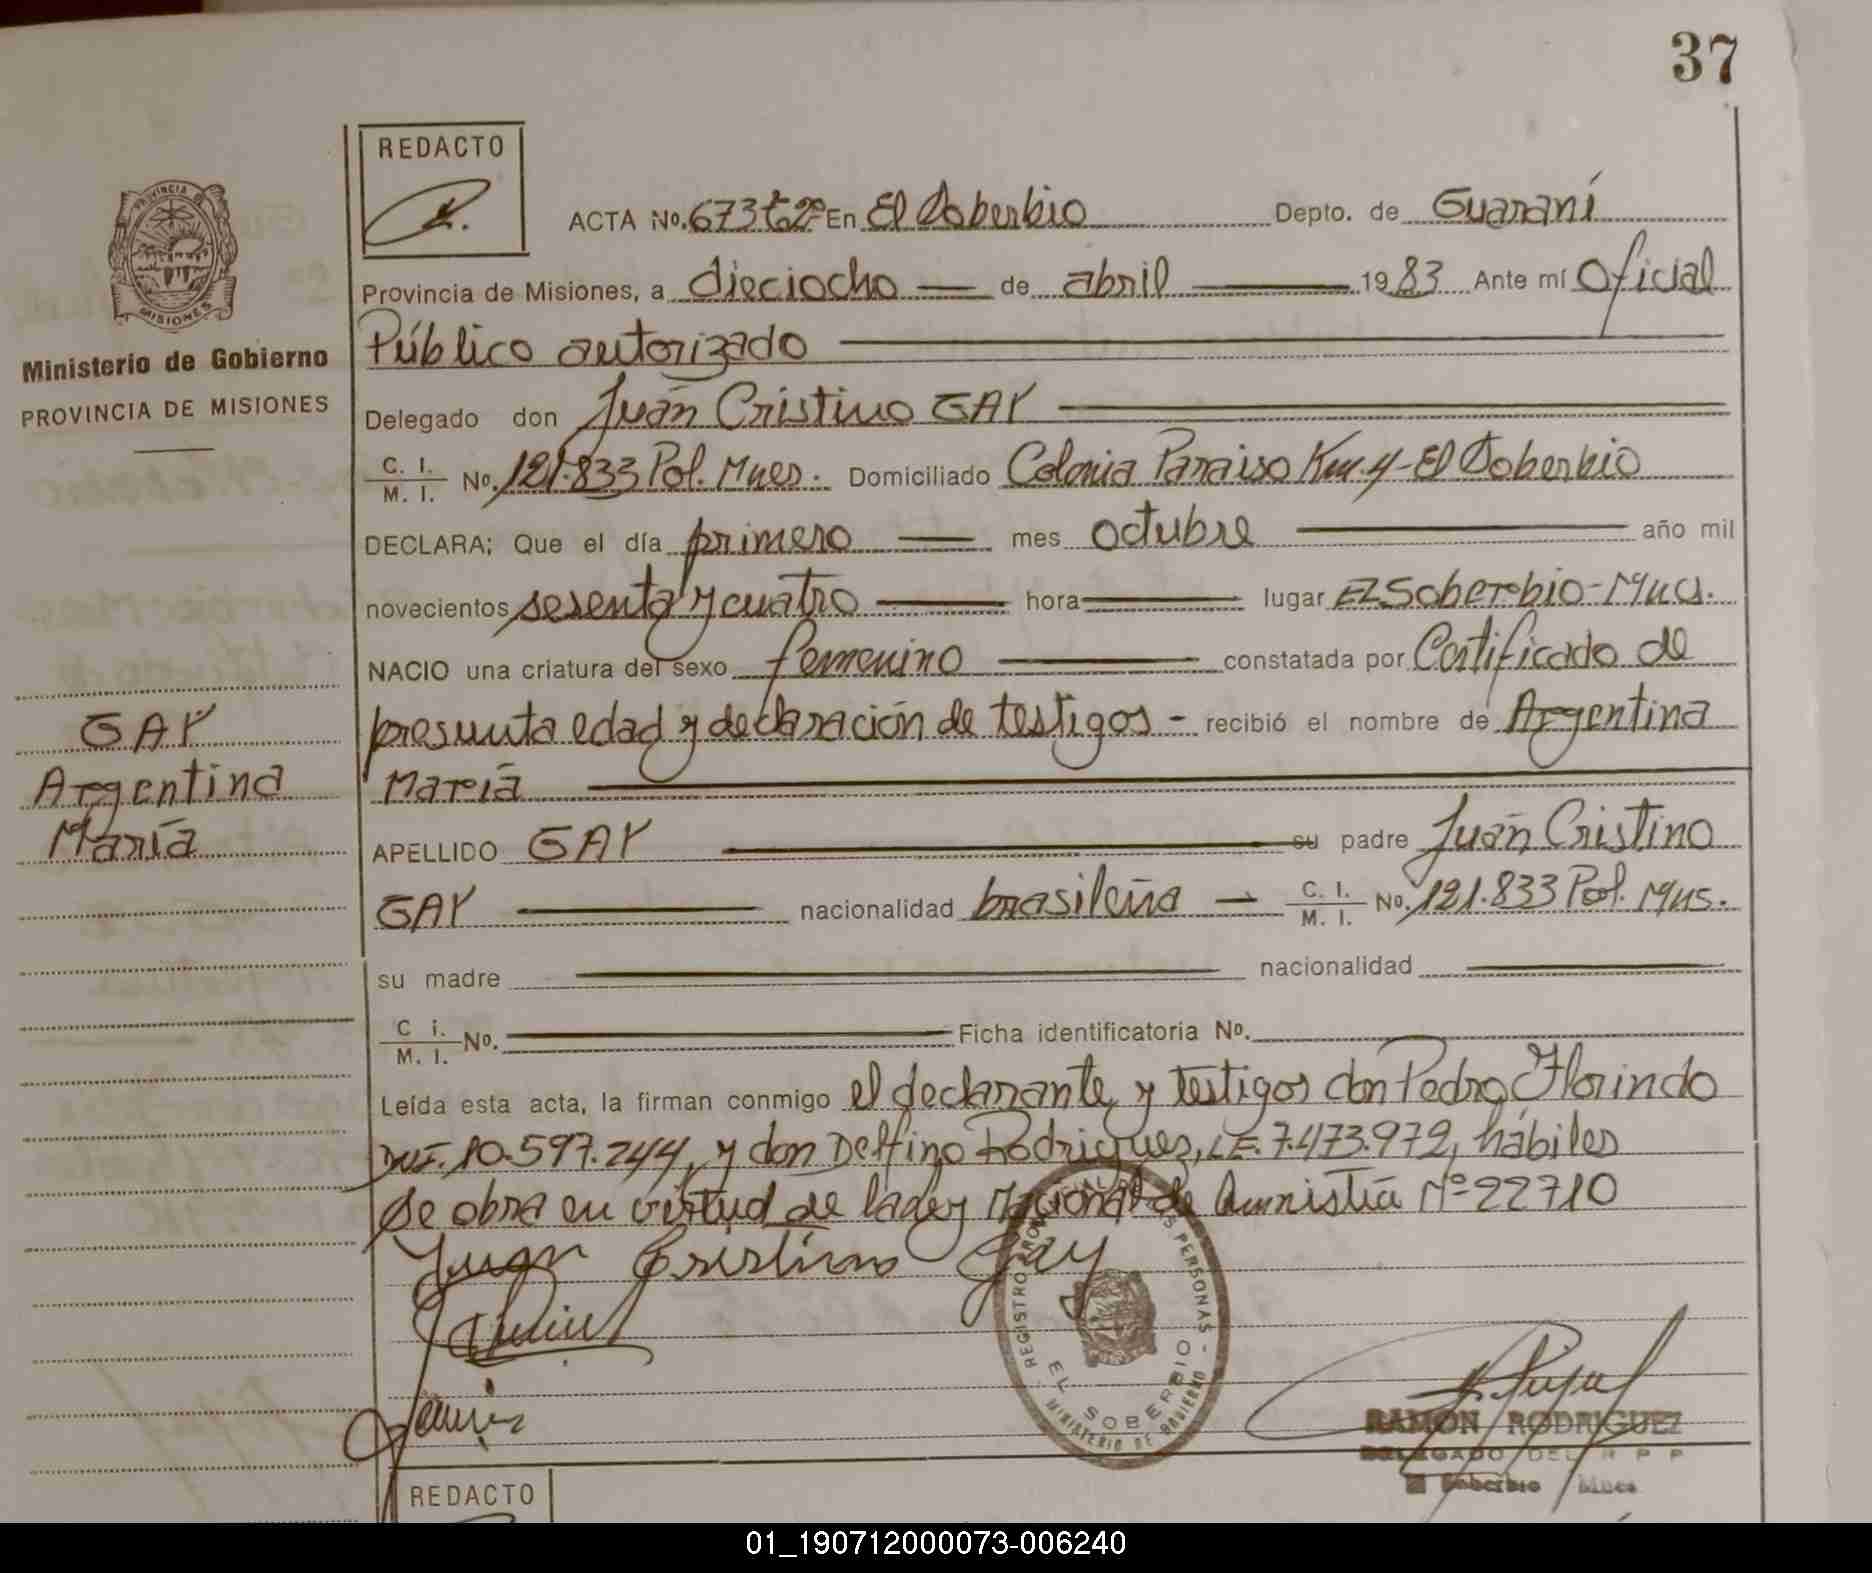 37
REDACTO
ACTA No. 673 tº2º En El Soberbio Depto. de Guaraní
Provincia de Misiones, a dieciocho de abril 1983 Ante mí Oficial
Público autorizado
Ministerio de Gobierno
PROVINCIA DE MISIONES
Delegado don Juan Cristino GAY
C. I. / M. I. No. 121.833 Pol. Mnes. Domiciliado Colonia Paraiso Km. 4 - El Soberbio
DECLARA; Que el día primero mes octubre año mil
novecientos sesenta y cuatro hora lugar El Soberbio - Mnes.
NACIO una criatura del sexo femenino constatada por Certificado de
presunta edad y declaración de testigos - recibió el nombre de Argentina
María
GAY
Argentina
María
APELLIDO GAY su padre Juan Cristino
GAY nacionalidad brasileña C. I. / M. I. No. 121.833 Pol. Mns.
su madre nacionalidad
C i. / M. I. No. Ficha identificatoria No.
Leída esta acta, la firman conmigo el declarante y testigos don Pedro Florindo
DNI. 10.597.244, y don Delfino Rodriguez, L.E. 7.473.972, hábiles
Se obra en virtud de la ley Nacional de Amnistía Nº 22710
Juan Cristino Gay
REGISTRO PERSONAS
MINISTERIO DE GOBIERNO
EL SOBERBIO
RAMON RODRIGUEZ
DELEGADO DEL R P P
El Soberbio Mnes
REDACTO
01_190712000073-006240